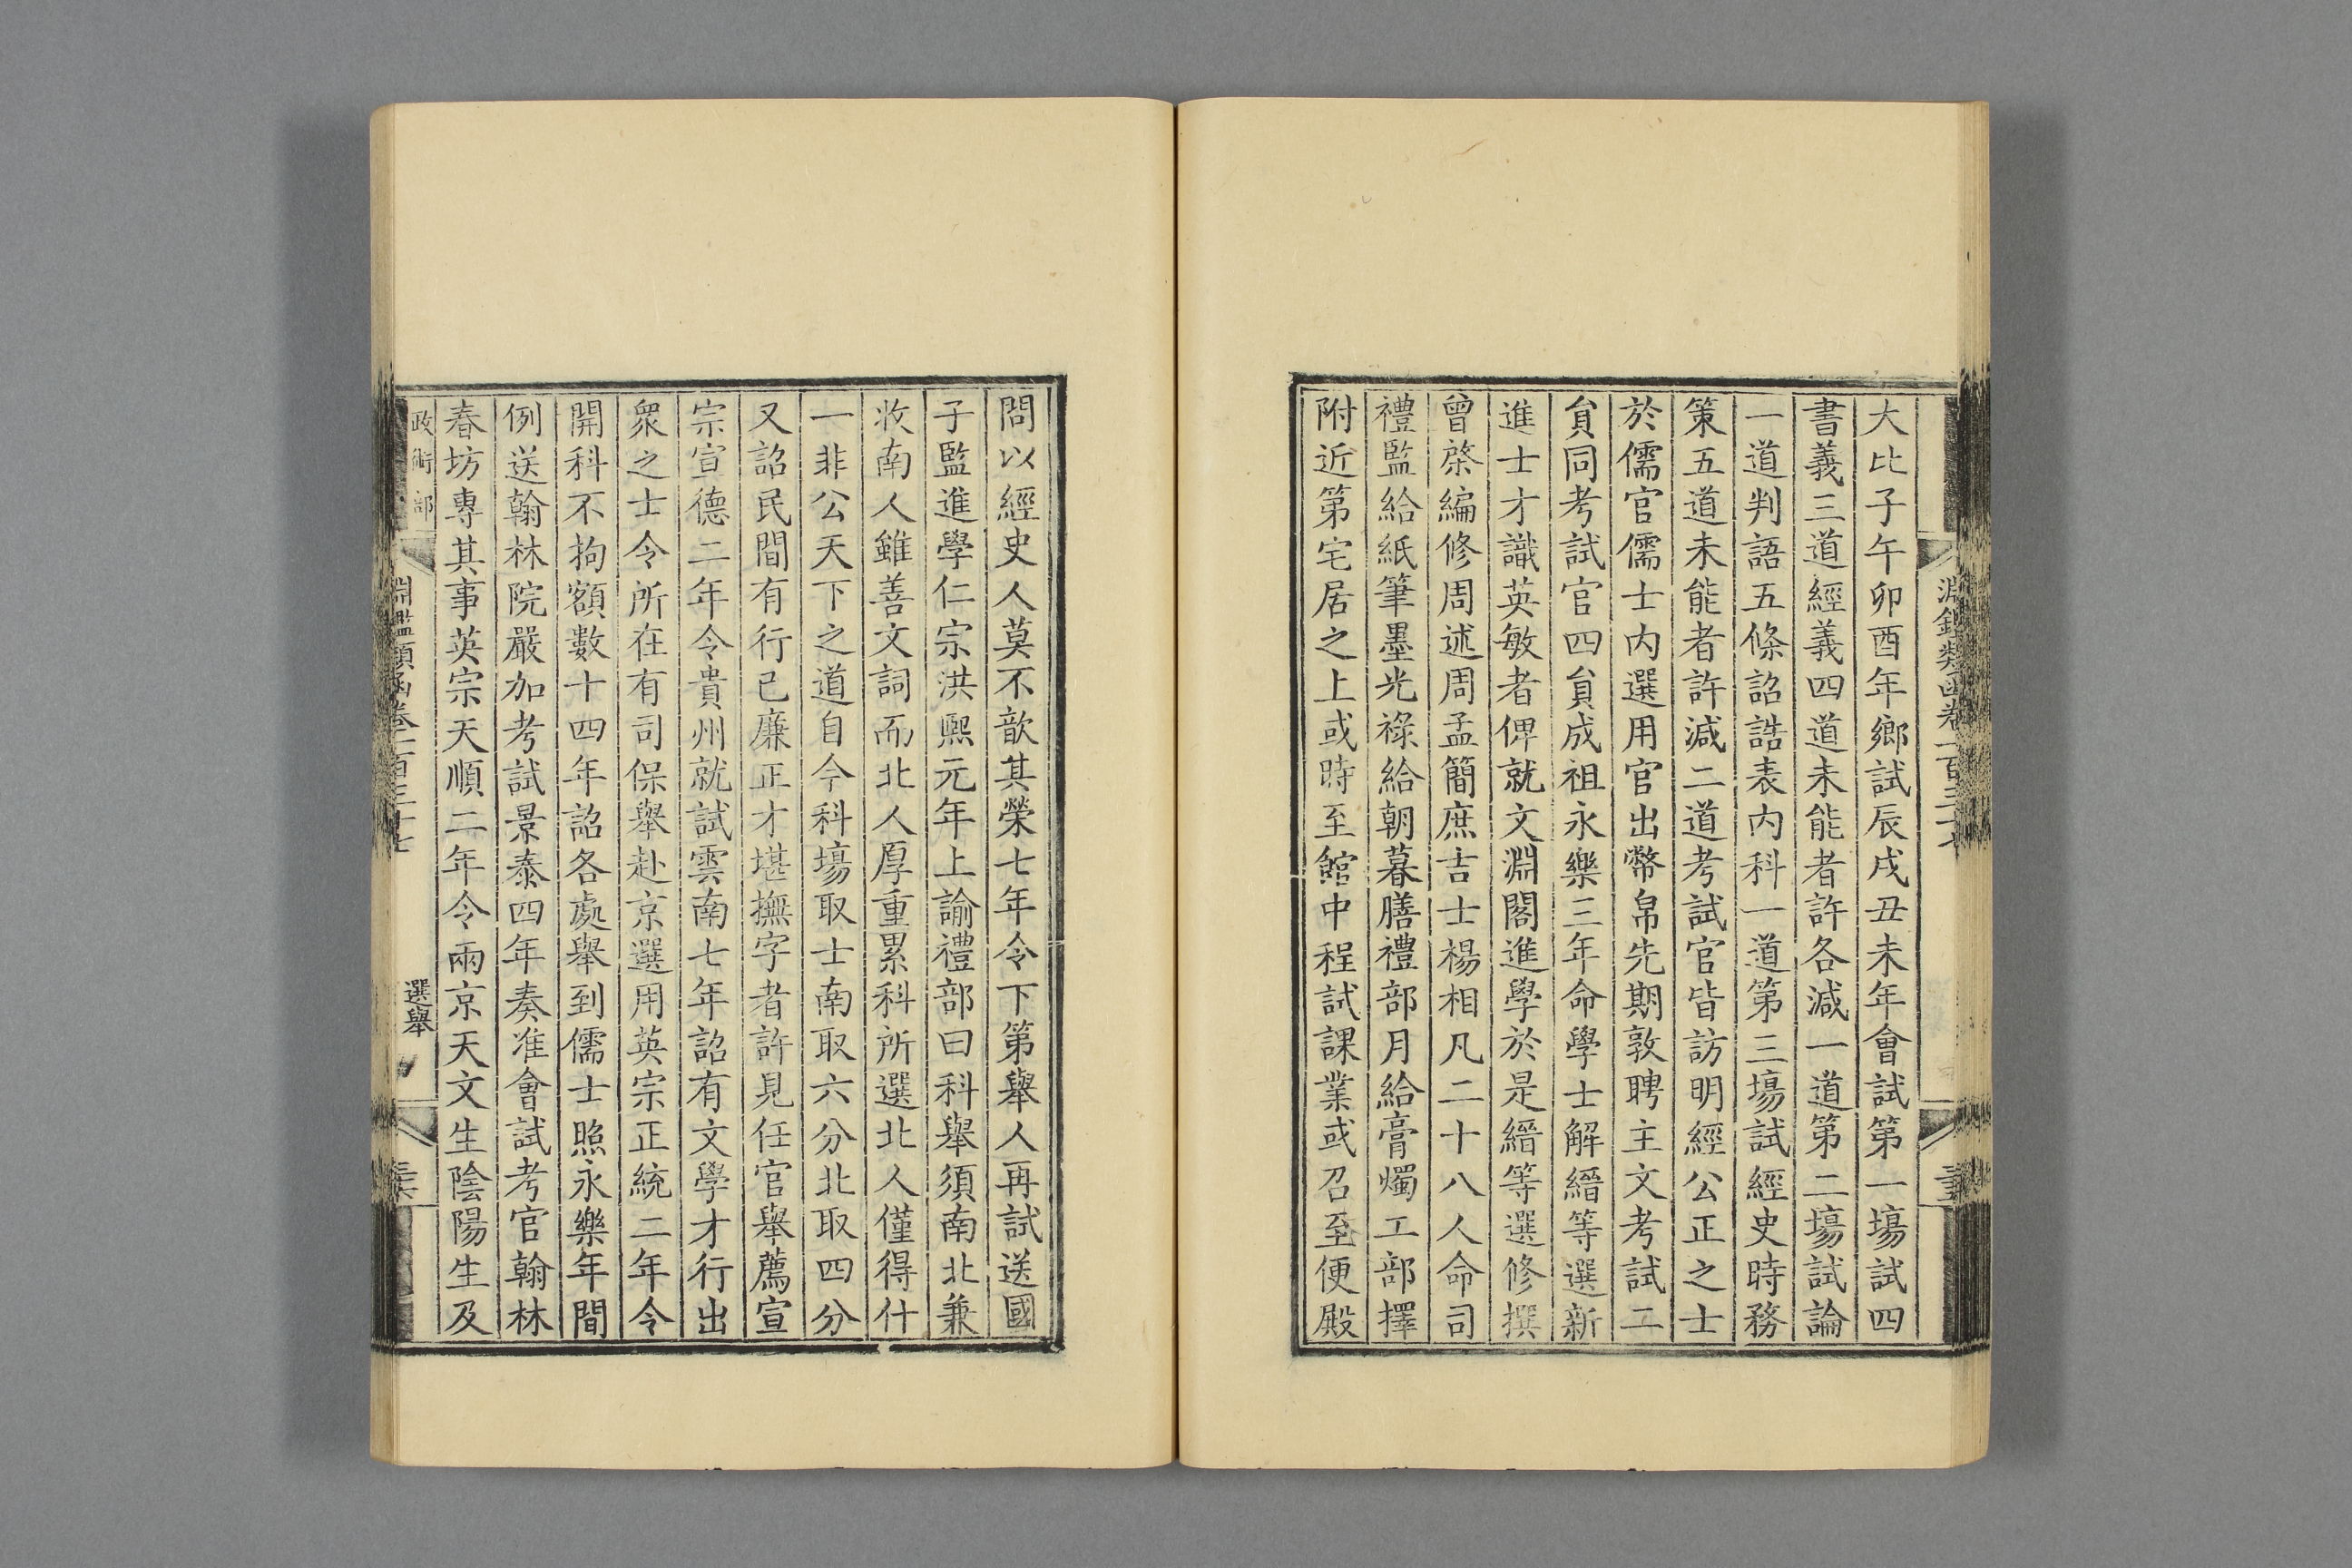 大比子午卯酉年鄉試辰戌丑未年會試第一塲試四
書義三道經義四道未能者許各減一道第二塲試論
一道判語五條詔誥表內科一道第三塲試經史時務
策五道未能者許減二道考試官皆訪明經公正之士
於儒官儒士內選用官出幣帛先期敦聘主文考試二
貟同考試官四貟成祖永樂三年命學士解縉等選新
進士才識英敏者俾就文淵閣進學於是縉等選修撰
曾棨編修周述周孟簡庶吉士楊相凡二十八人命司
禮監給紙筆墨光祿給朝暮膳禮部月給膏燭工部擇
附近第宅居之上或時至館中程試課業或召至便殿
問以經史人莫不歆其榮七年令下第舉人再試送國
子監進學仁宗洪熈元年上諭禮部曰科舉須南北兼
收南人雖善文詞而北人厚重累科所選北人僅得什
一非公天下之道自今科塲取士南取六分北取四分
又詔民間有行已廉正才堪撫字者許見任官舉薦宣
宗宣德二年令貴州就試雲南七年詔有文學才行出
衆之士令所在有司保舉赴京選用英宗正統二年令
開科不拘額數十四年詔各處舉到儒士照永樂年間
例送翰林院嚴加考試景泰四年奏准會試考官翰林
春坊專其事英宗天順二年令兩京天文生陰陽生及
政術部
淵鑑類函卷一百三十七
選舉